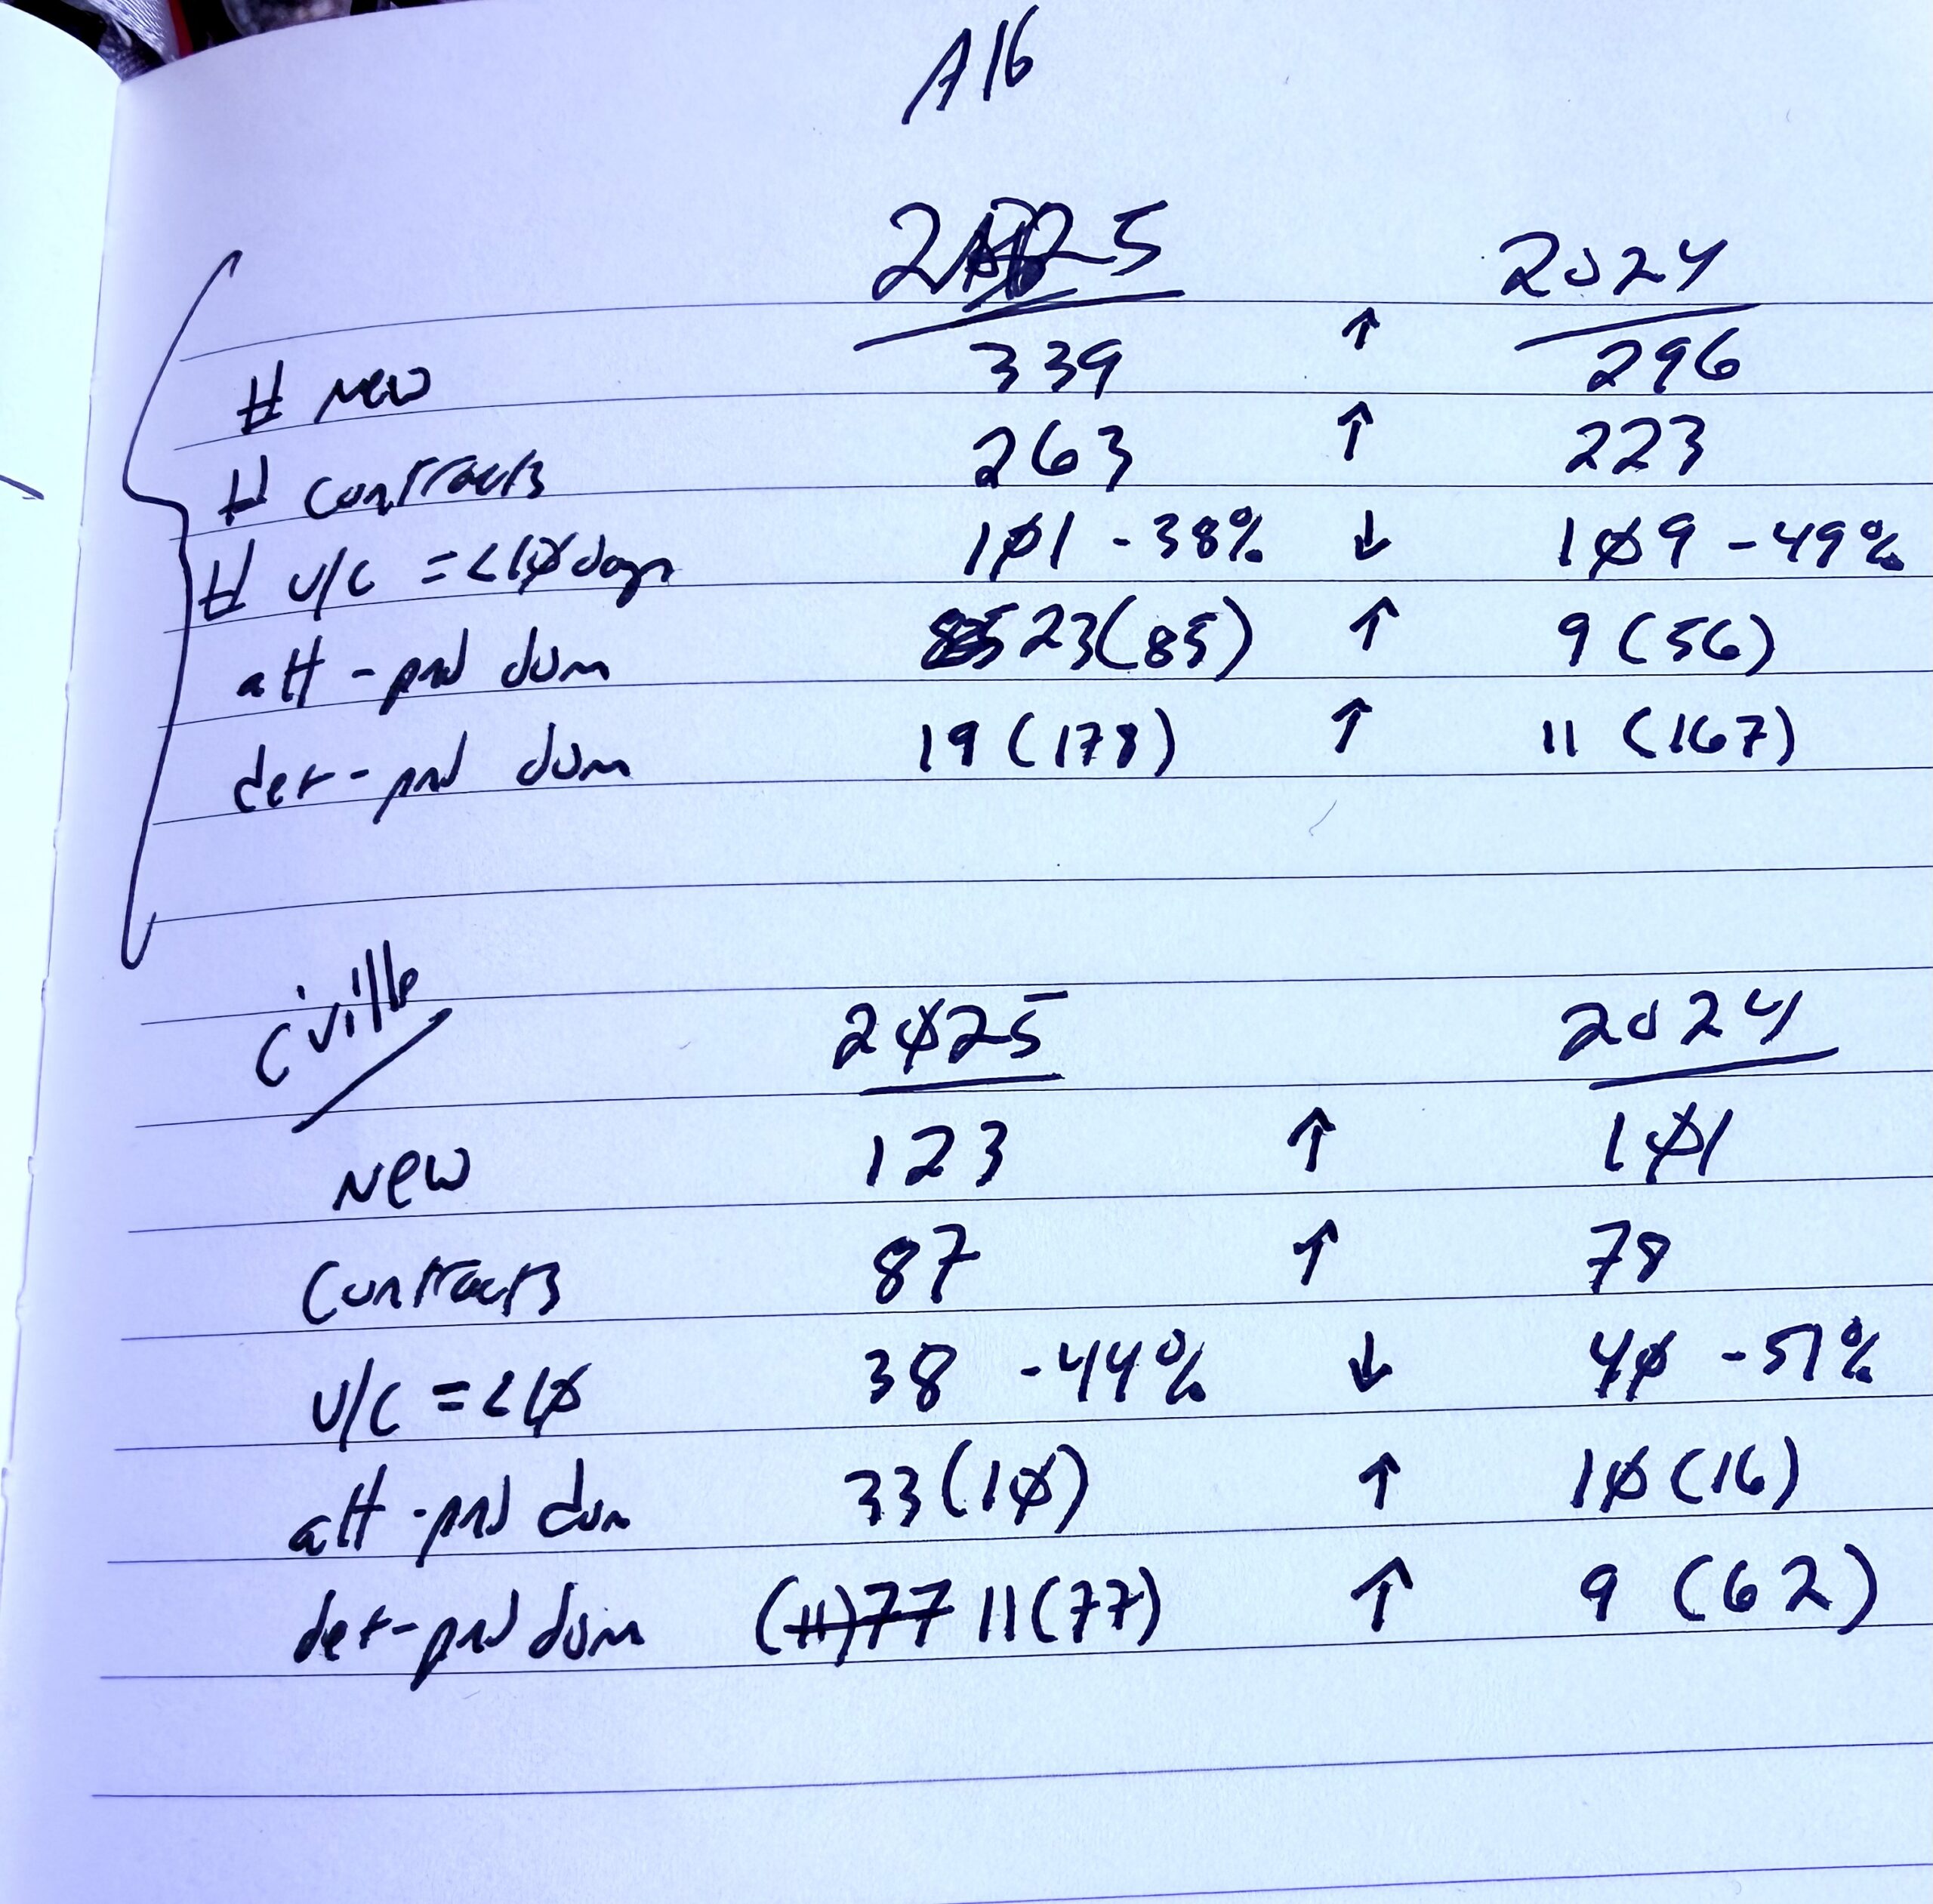 Alb
2025 2024
# new 339 ↑ 296
# contracts 263 ↑ 223
# u/c =<10 days 101 - 38% ↓ 109 - 49%
att - pnd dom 23(85) ↑ 9 (56)
det - pnd dom 19 (178) ↑ 11 (167)
cville 2025 2024
New 123 ↑ 101
Contracts 87 ↑ 78
u/c =<10 38 - 44% ↓ 40 - 51%
att - pnd dom 33(10) ↑ 10(16)
det-pnd dom (11)77 11(77) ↑ 9 (62)